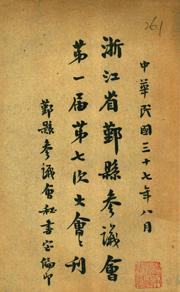 261
中華民國三十七年八月
浙江省鄞縣參議會
第一届第七次大會會刊
鄞縣參議會秘書室編印